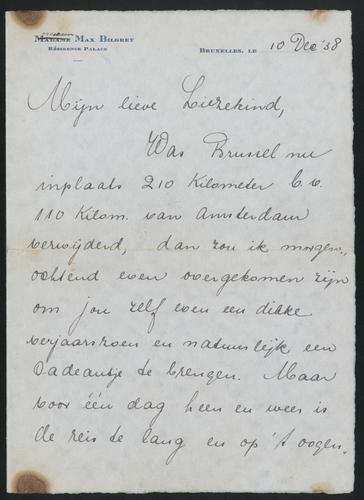 Madame Max Bilgrey
Résidence Palace
Bruxelles, le 10 Dec '38
Mijn lieve Liezekind,
Was Brussel nu
inplaats 210 Kilometer b.v.
110 Kilom. van Amsterdam
verwijderd, dan zou ik morgen-
ochtend even overgekomen zijn
om jou zelf even een dikke
verjaarszoen en natuurlijk een
Cadeautje te brengen. Maar
voor één dag heen en weer is
de reis te lang en op 't oogen-